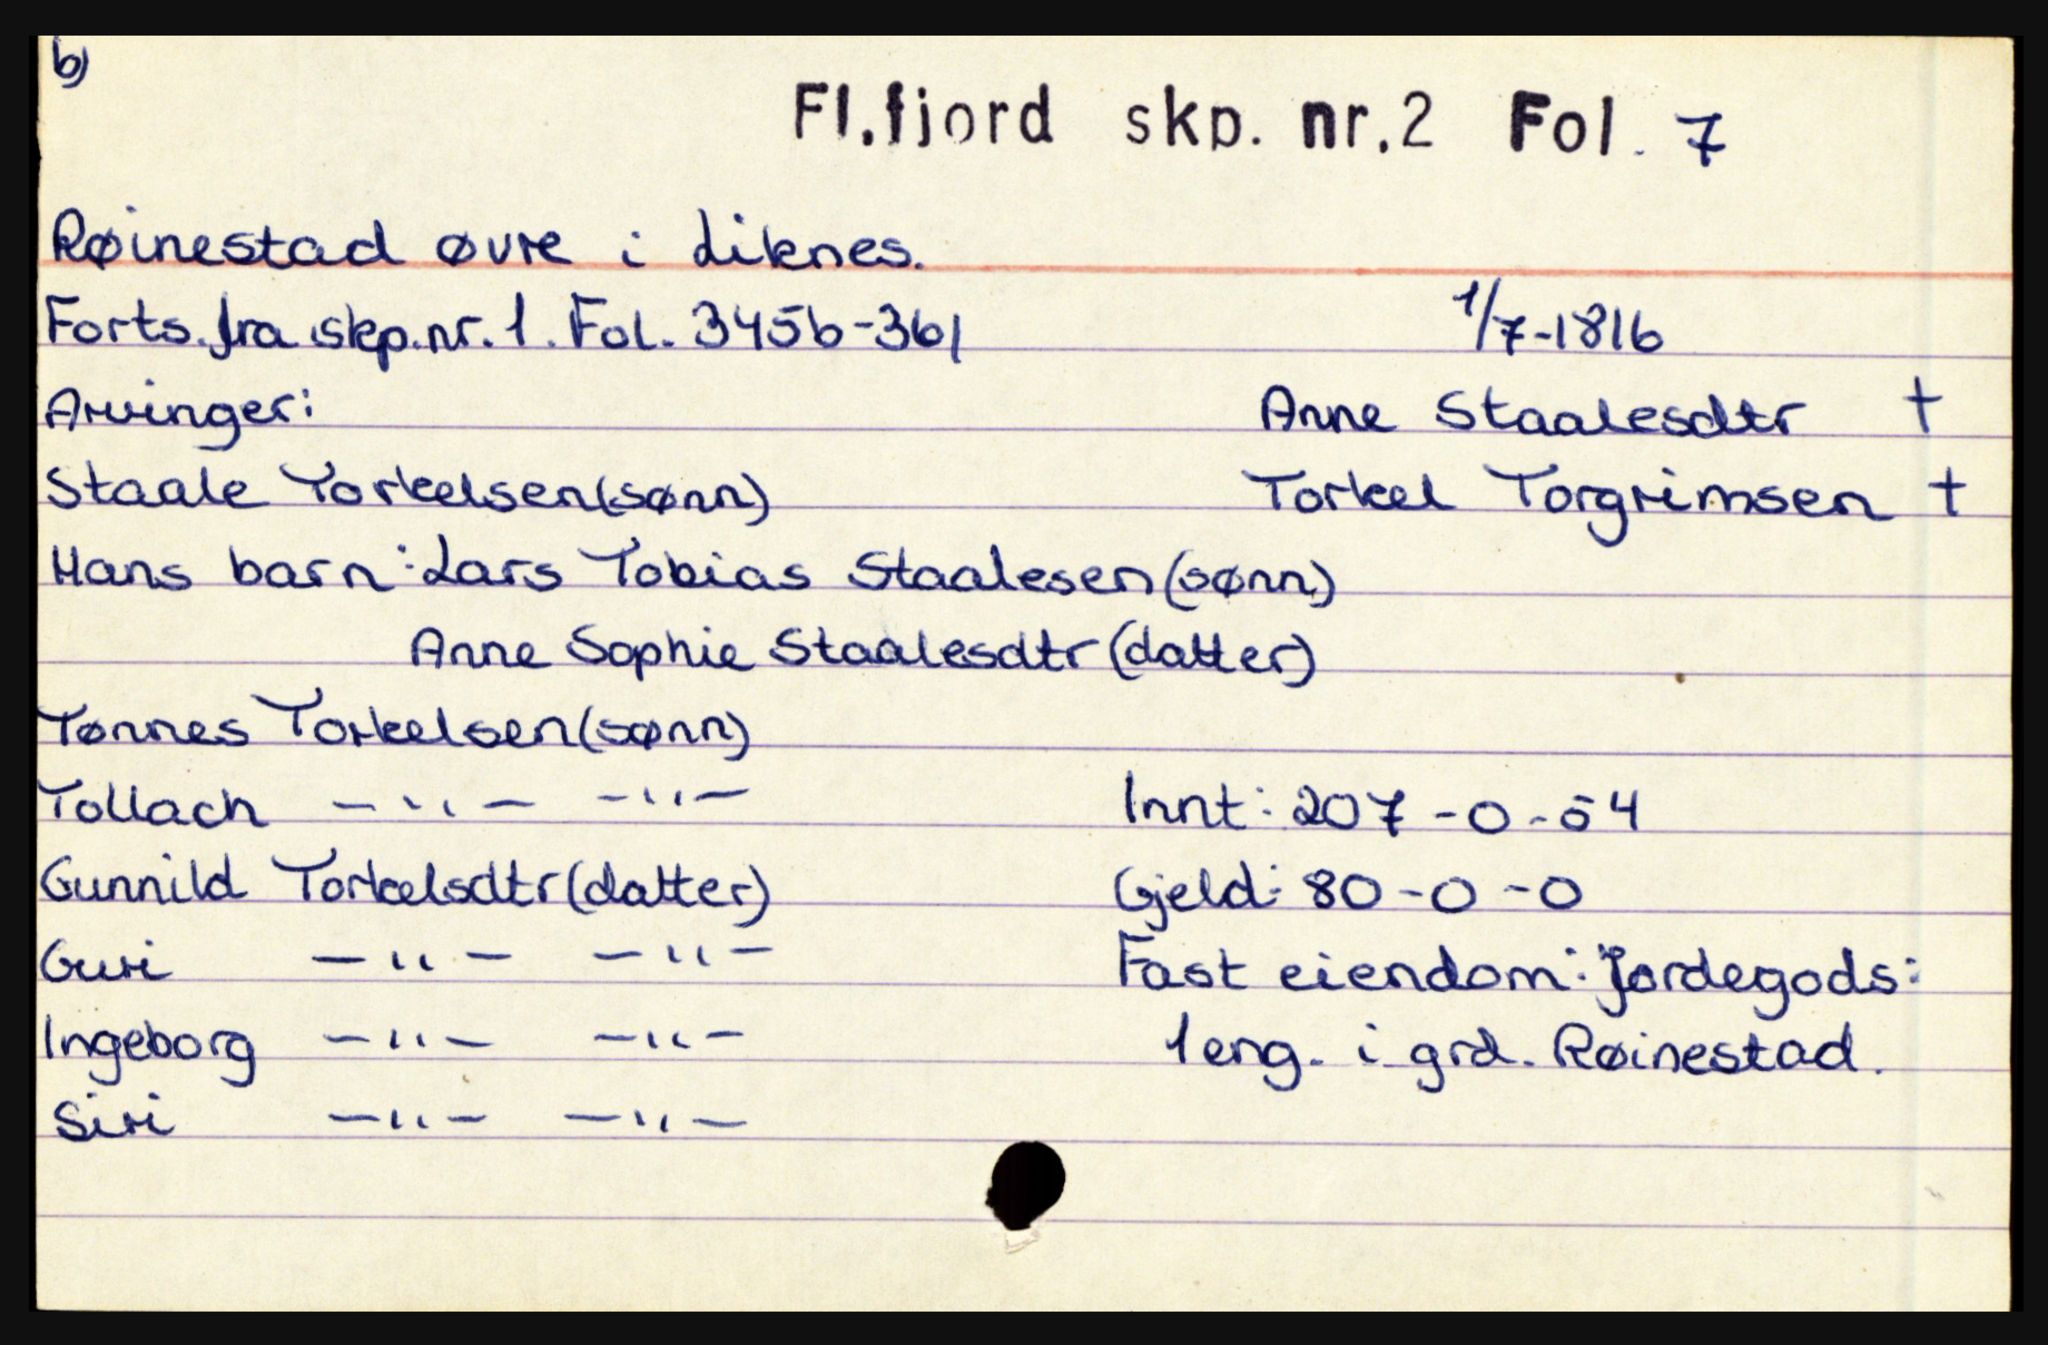 b)
Fl.fjord skp. nr.2 Fol. 7
Røinestad øvre i Liknes.
Forts. fra skp.nr. 1. Fol. 345b-361 1/7-1816
Arvinger: Anne Staalesdtr †
Staale Torkelsen (sønn) Torkel Torgrimsen †
Hans barn: Lars Tobias Staalesen (sønn)
Anne Sophie Staalesdtr (datter)
Tønnes Torkelsen (sønn)
Tollach -"- -"- Innt: 207-0-54
Gunnild Torkelsdtr (datter) Gjeld: 80-0-0
Guri -"- -"- Fast eiendom: Jordegods:
Ingeborg -"- -"- 1 eng. i grd. Røinestad.
Siri -"- -"-